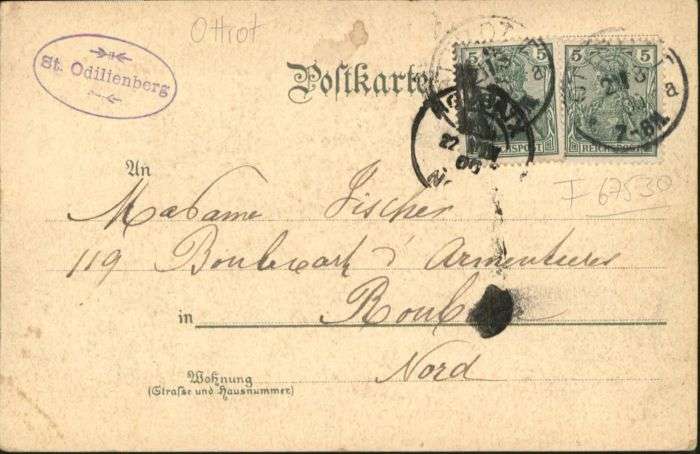 Ottrot
St. Odilienberg
Postkarte
5 5 5 5
REICHSPOST REICHSPOST
7-8N.
a
a
An
F 67530
Madame Fischer
119 Boulevart d'Armentieres
in Roub
Nord
Wohnung
(Straße und Hausnummer)